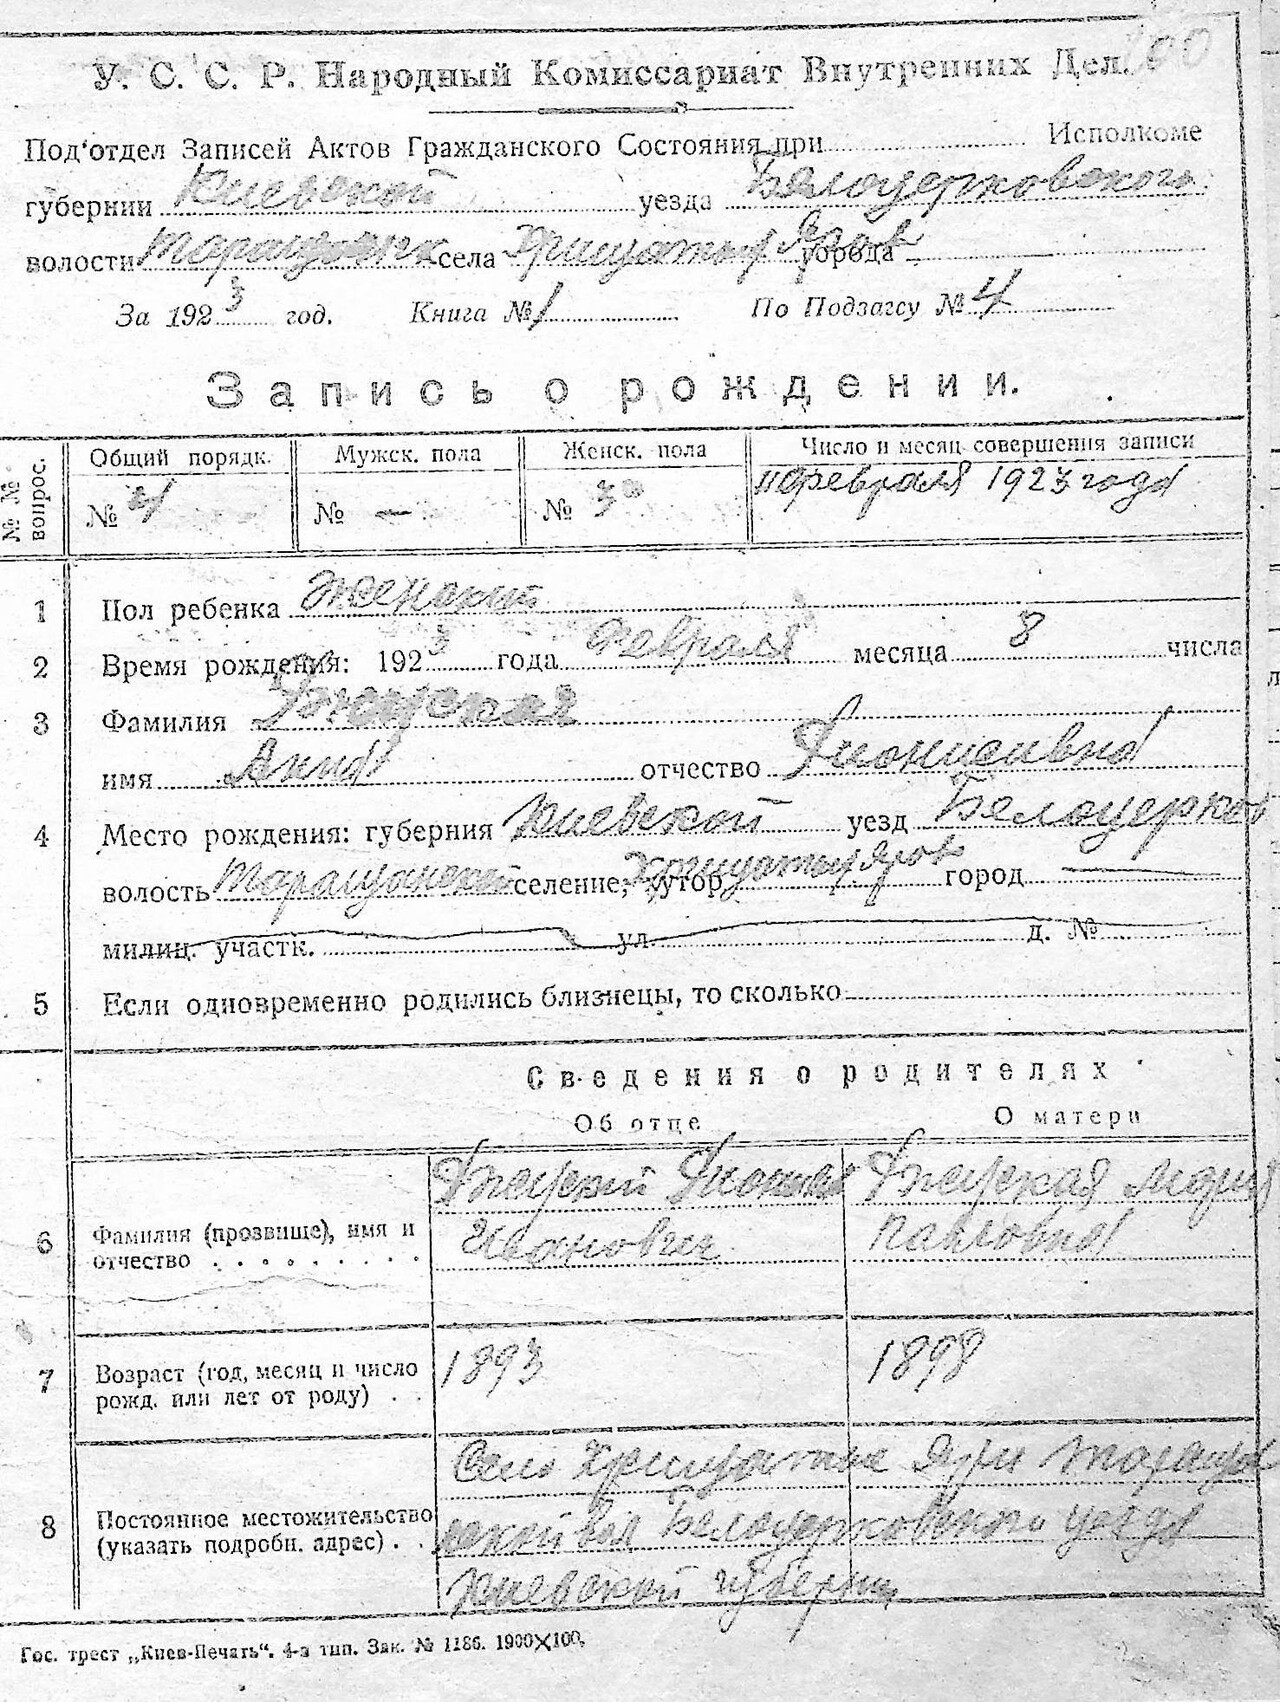 У. С. С. Р. Народный Комиссариат Внутренних Дел. 100
Под'отдел Записей Актов Гражданского Состояния при Исполкоме
губернии Киевской уезда Белоцерковского
волости Таращанск села Хрищатых Яров города
За 1923 год. Книга № 1 По Подзагсу № 4
Запись о рождении.
№ № вопрос.
Общий порядк. Мужск. пола Женск. пола Число и месяц совершения записи
№ 4 № — № 3 11 февраля 1923 года
1 Пол ребенка женский
2 Время рождения: 1923 года февраля месяца 8 числа
3 Фамилия
имя Анна отчество Дионисивна
4 Место рождения: губерния Киевской уезд Белоцерков
волость Таращанской селение, хутор Хрищатых Яров город
милиц. участк. ул. д. №
5 Если одновременно родились близнецы, то сколько
Сведения о родителях
Об отце О матери
6 Фамилия (прозвище), имя и отчество Иванович Мария Павловна
7 Возраст (год, месяц и число рожд. или лет от роду) 1893 1898
8 Постоянное местожительство (указать подробн. адрес) Село Хрищатые Яри Таращан
ской вол Белоцерковского уезда
Киевской губернии
Гос. трест „Киев-Печать". 4-я тип. Зак. № 1186. 1900×100.